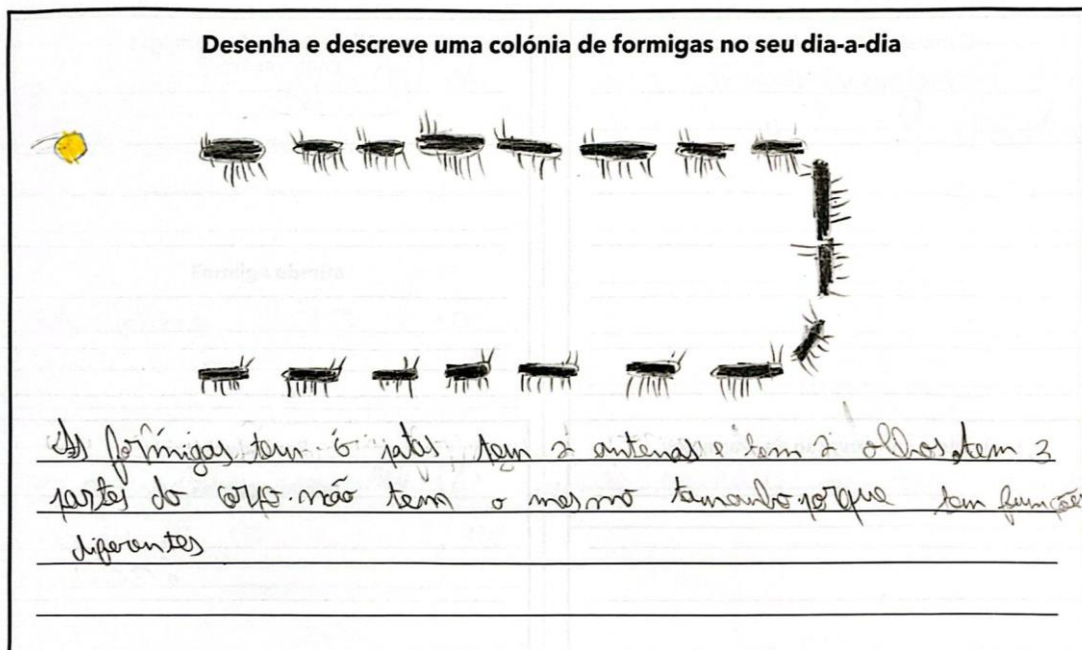 Desenha e descreve uma colónia de formigas no seu dia-a-dia
As formigas tem 6 patas, tem 2 antenas e tem 2 olhos, tem 3
partes do corpo. não tem o mesmo tamanho porque tem funções
diferentes